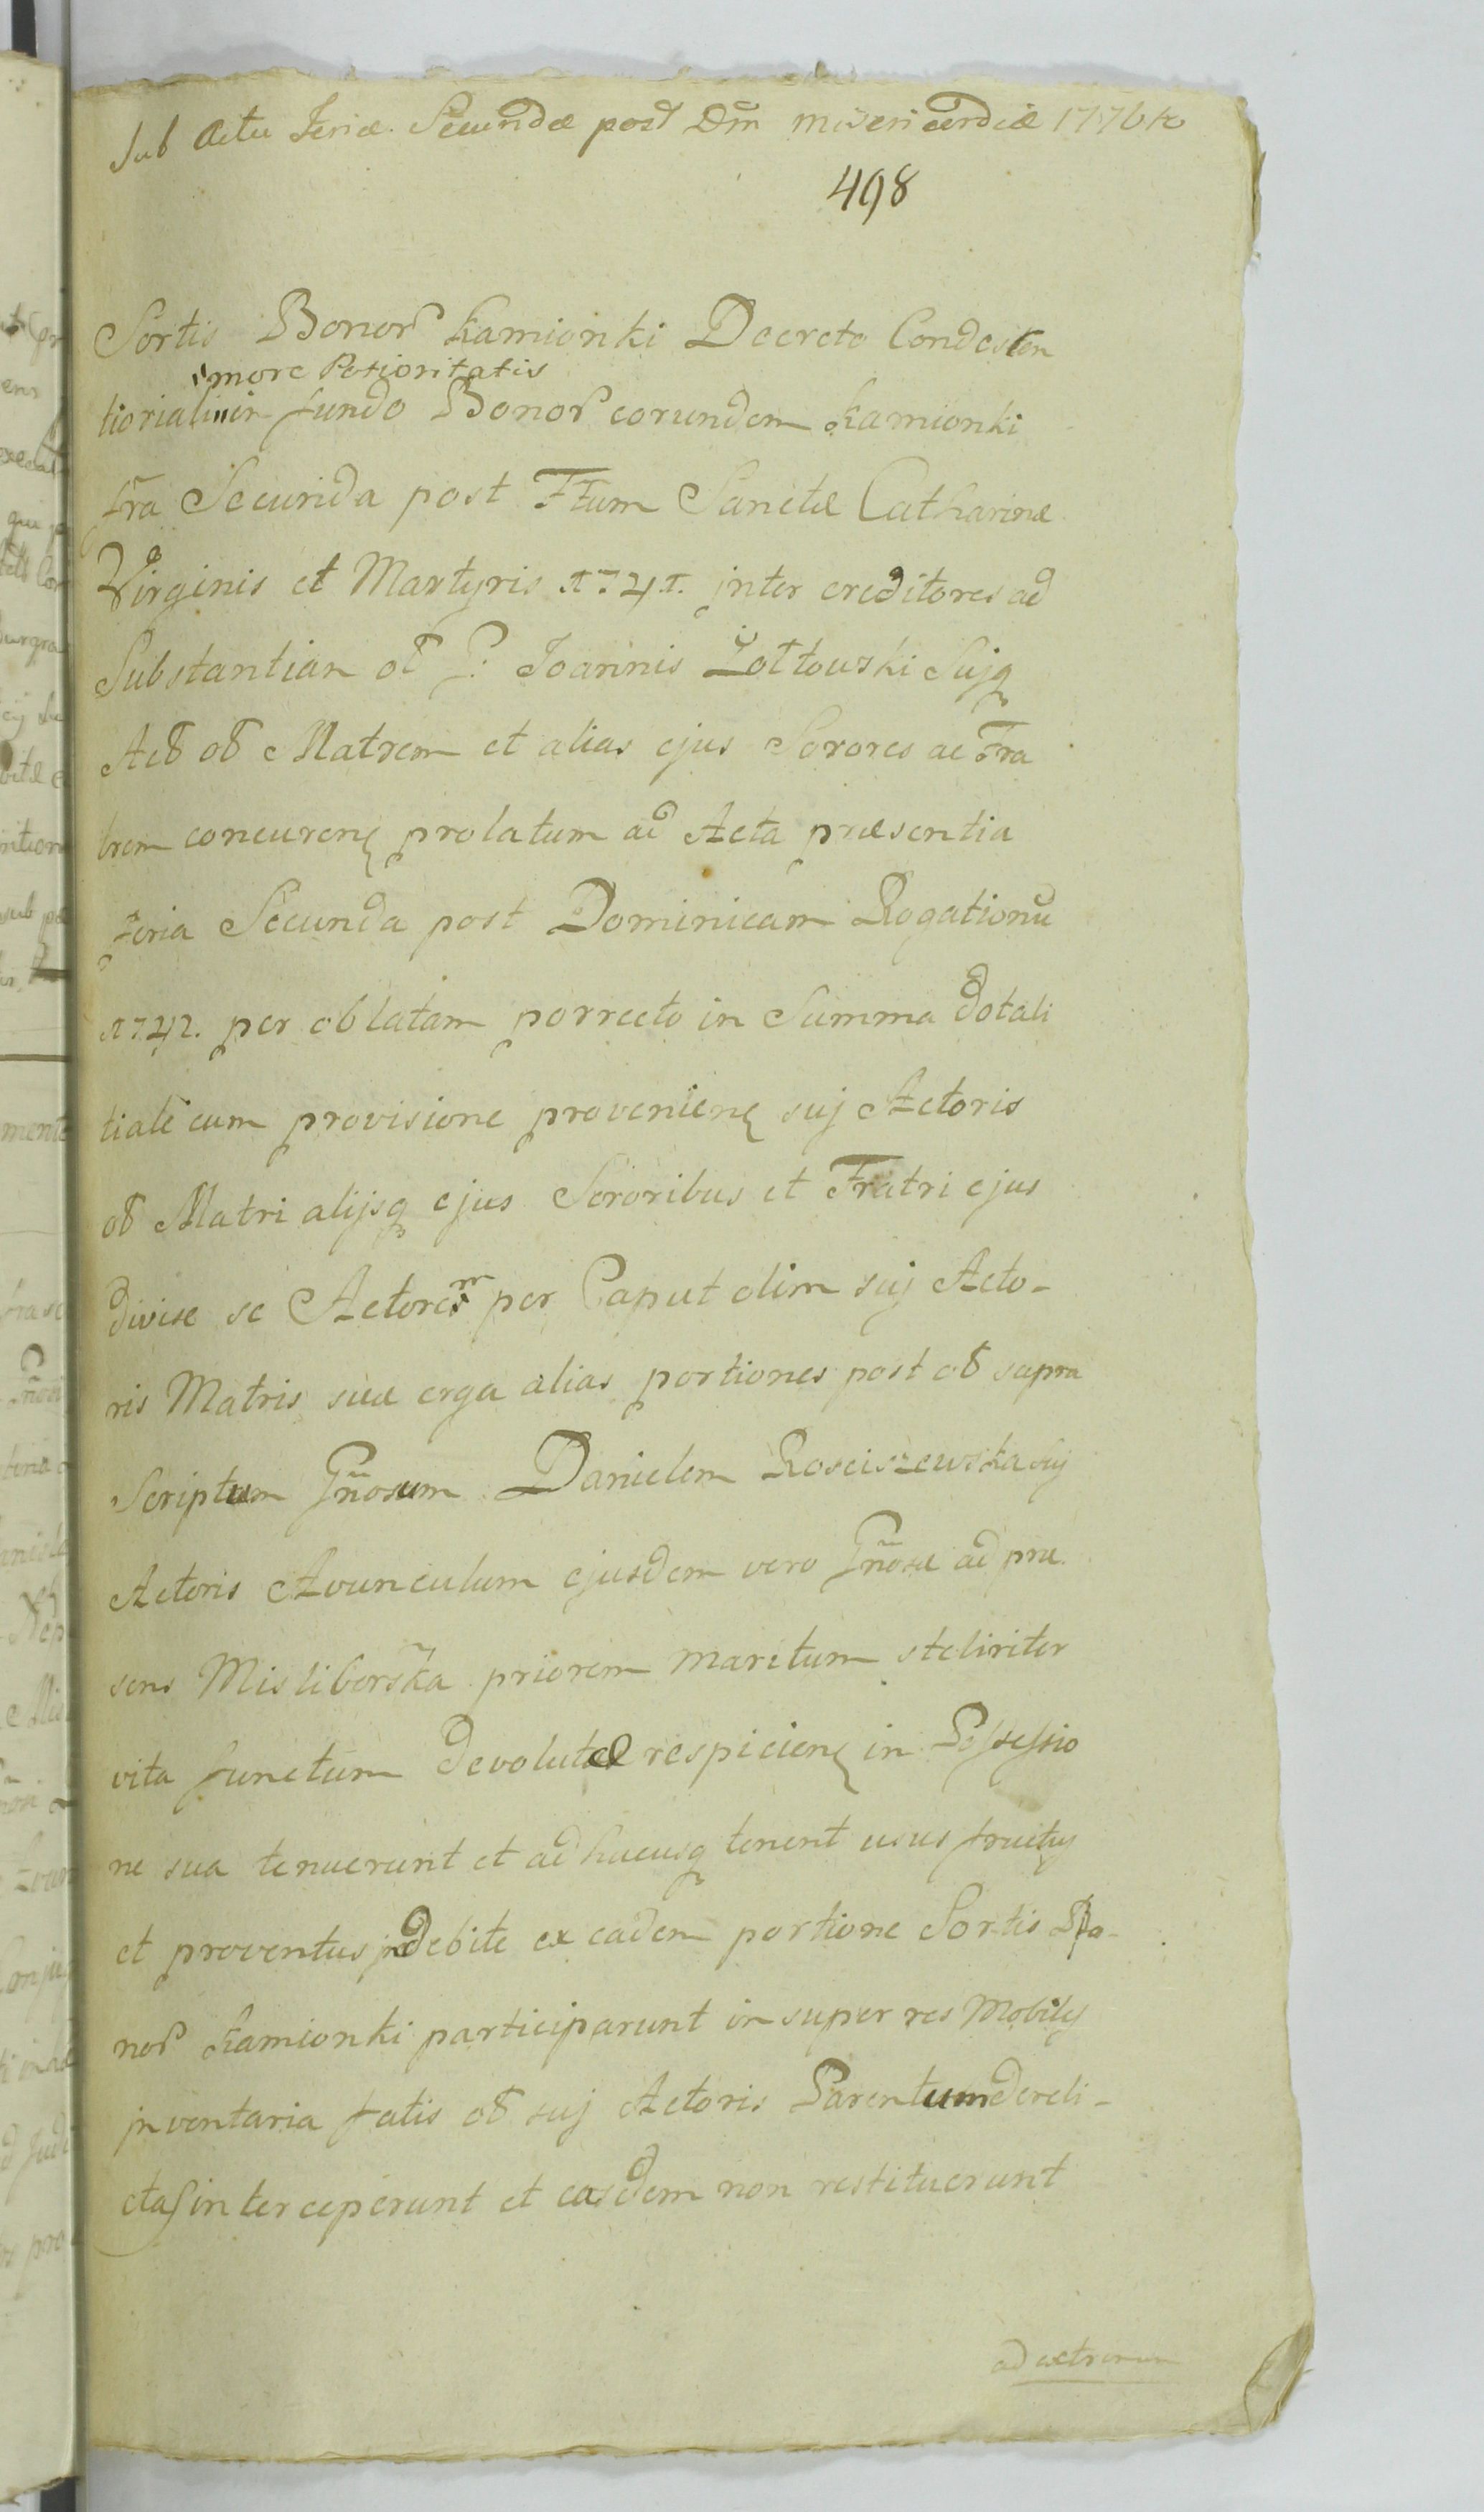 Sub Actu Feriæ Secundæ post Dm̃ misericordiæ 1776to
498
Sortis Bonor Kamionki Decreto Condescen
more Potioritatis
tioriali in fundo Bonor eorundem Kamionki
fra Secunda post Ftum Sanctæ Catharinæ
Virginis et Martyris 1741. inter creditores ad
Substantian ol G. Joannis Żółtowski Sujq
Act ol Matrem et alias ejus Sorores ac Fra
trem concurenę prolatum ad Acta præsentia
feria Secunda post Dominicam Rogationū
1742. per oblatam porrecto in Summa dotali
tiali cum provisione provenienę suj Actoris
ol Matri alijsq ejus Sororibus et Fratri ejus
divise se Actorem per Caput olim suj Acto-
ris Matris suæ erga alias portiones post ol supra
Scriptum Gñosum Danielem Rosciszewski suj
Actoris Avunculum ejusdem vero Gñosæ ad præ
sens Misliborska priorem maritum steliriter
vita functum devolutæ respicienę in Possessio
ne sua tenuerunt et ad hucusq tenent usus fructus
et proventus indebite ex eadem portione Sortis Bo-
nor Kamionki participarunt in super res Mobiles
inventaria fatis ol suj Actoris Parentum dereli-
ctas interceperunt et easdem non restituerunt
ad extremum